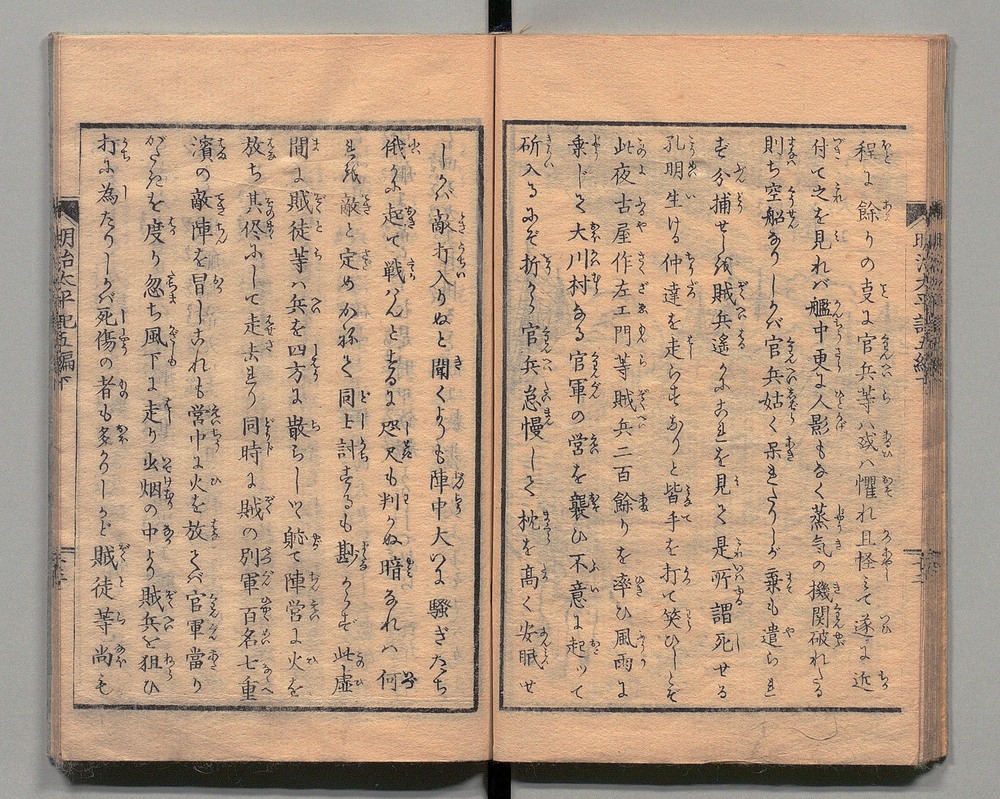 程に餘りの㕝に官兵等ハ或ハ懼れ且怪ミて遂に近
付て之を見れバ艦中更に人影もなく蒸気の機関破れたる
則ち空船なりしかバ官兵姑く呆れたりしが乗も遣られ
ず分捕せしを賊兵遙かにこれを見て是所謂死せる
孔明生ける仲達を走らすなりと皆手を打て笑ひしとぞ
此夜古屋作左エ門等賊兵二百餘りを率ひ風雨に
乗じて大川村なる官軍の営を襲ひ不意に起つて
斫入るにぞ折から官兵怠慢して枕を高く安眠せ
しかバ敵打入りぬと聞くよりも陣中大いに騒ぎたち
俄かに起て戦ハんとするに咫尺も判かぬ暗なれハ何
れを敵と定めかねて同士討するも尠からず此虚
間に賊徒等ハ兵を四方に散らしつゝ軈て陣営に火を
放ち其侭にして走去れり同時に賊の別軍百名七重
濱の敵陣を冒しこれも営中に火を放てバ官軍當り
がたきを度り忽ち風下に走り出烟の中より賊兵を狙ひ
打に為たりしかバ死傷の者も多かりしかど賊徒等尚も
明治太平記五編下